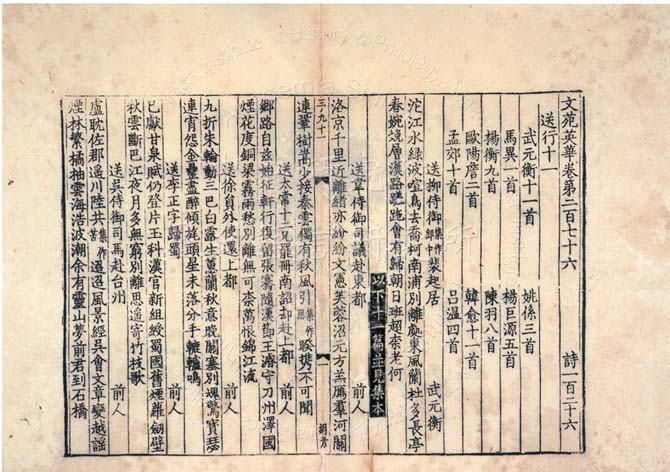 文苑英華卷第二百七十六　詩一百二十六
送行十一
武元衡十一首　姚係三首
馬異一首　楊巨源五首
楊衡九首　陳羽八首
歐陽詹二首　韓愈十一首
孟郊十首　呂溫四首
送柳侍御集作郎中裴起居　武元衡
沱江水綠波喧鳥去喬柯南浦別離處東風蘭杜多長亭
春婉娩層漢路蹉跎會有歸朝日班超奈老何　以下十一篇並見集本
送韋侍御司議赴東都　前人
洛京千里近離緒亦紛紛文憲芙蓉沼元方羔鴈羣河關
三·九十一　一　胡彥
連鞏樹嵩少接秦雲獨有秋風引集作思暌携不可聞
送太常十二兄罷冊南詔却赴上都
鄉路自兹始征軒行復留張騫隨漢節王濬守刀州澤國
煙花度銅梁霧雨愁別離無可奈萬恨錦江流
送徐員外使還上都　前人
九折朱輪動三巴白露生蕙蘭秋意晚關塞別魂驚寶瑟
連宵怨金罍盡醉傾旄頭星未落分手轆轤鳴
送李正字歸蜀　前人
已獻甘泉賦仍登片玉科漢官新組綬蜀國舊煙蘿劒壁
秋雲斷巴江夜月多無窮別離思遥寄竹枝歌
送吳侍御司馬赴台州　前人
盧耽佐郡遥川陸共集作苦迢迢風景輕吳會文章變越謡
煙林繁橘柚雲海浩波潮余有靈山夢前君到石橋